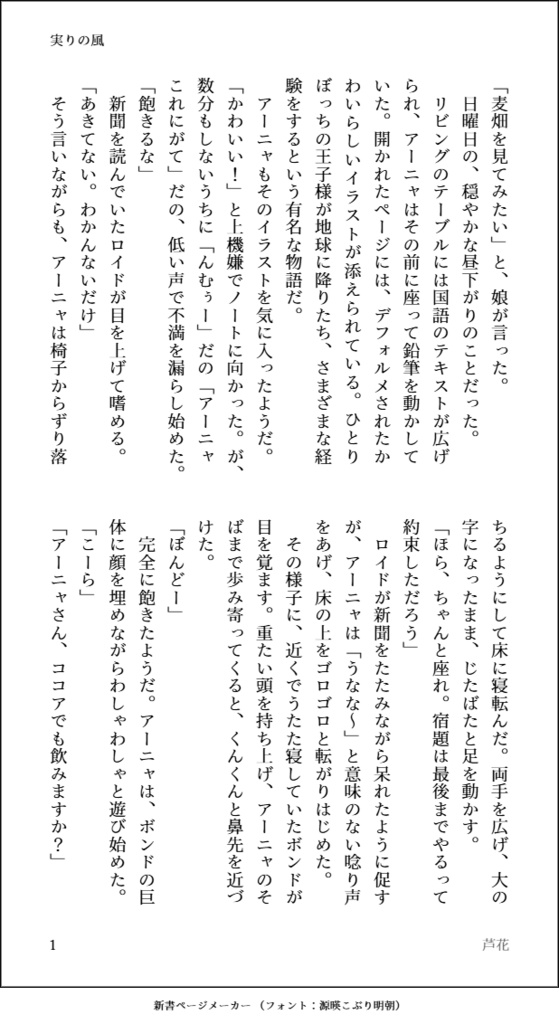 実りの風
「麦畑を見てみたい」と、娘が言った。
日曜日の、穏やかな昼下がりのことだった。
リビングのテーブルには国語のテキストが広げ
られ、アーニャはその前に座って鉛筆を動かして
いた。開かれたページには、デフォルメされたか
わいらしいイラストが添えられている。ひとり
ぼっちの王子様が地球に降りたち、さまざまな経
験をするという有名な物語だ。
アーニャもそのイラストを気に入ったようだ。
「かわいい！」と上機嫌でノートに向かった。が、
数分もしないうちに「んむぅー」だの「アーニャ
これにがて」だの、低い声で不満を漏らし始めた。
「飽きるな」
新聞を読んでいたロイドが目を上げて嗜める。
「あきてない。わかんないだけ」
そう言いながらも、アーニャは椅子からずり落
ちるようにして床に寝転んだ。両手を広げ、大の
字になったまま、じたばたと足を動かす。
「ほら、ちゃんと座れ。宿題は最後までやるって
約束しただろう」
ロイドが新聞をたたみながら呆れたように促す
が、アーニャは「うなな〜」と意味のない唸り声
をあげ、床の上をゴロゴロと転がりはじめた。
その様子に、近くでうたた寝していたボンドが
目を覚ます。重たい頭を持ち上げ、アーニャのそ
ばまで歩み寄ってくると、くんくんと鼻先を近づ
けた。
「ぼんどー」
完全に飽きたようだ。アーニャは、ボンドの巨
体に顔を埋めながらわしゃわしゃと遊び始めた。
「こーら」
「アーニャさん、ココアでも飲みますか？」
1
芦花
新書ページメーカー（フォント：源暎こぶり明朝）